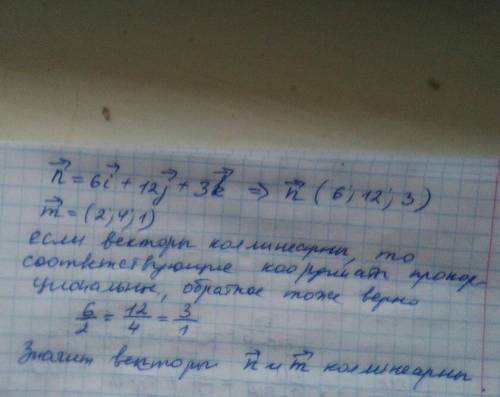 n⃗ = 6i⃗ + 12j⃗ + 3k⃗ ⇒ n⃗ (6; 12; 3)
m⃗ = (2; 4; 1)
если векторы коллинеарны, то
соответствующие координаты пропор-
циональные, обратное тоже верно
6/2 = 12/4 = 3/1
Значит векторы n⃗ и m⃗ коллинеарны.